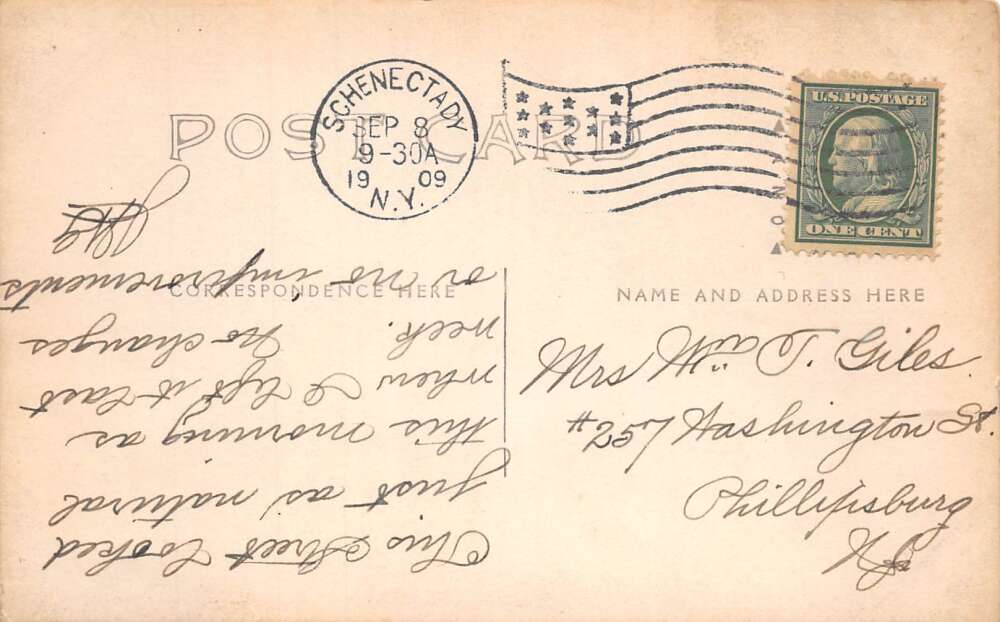 POST CARD
SCHENECTADY
SEP 8
9-30A
1909
N.Y.
U.S. POSTAGE
ONE CENT
CORRESPONDENCE HERE
NAME AND ADDRESS HERE
Mrs Wm T. Giles
#257 Washington St.
Phillipsburg
NJ
This Street looked
just as natural
this morning as
when I left it last
week. No changes
or no improvements